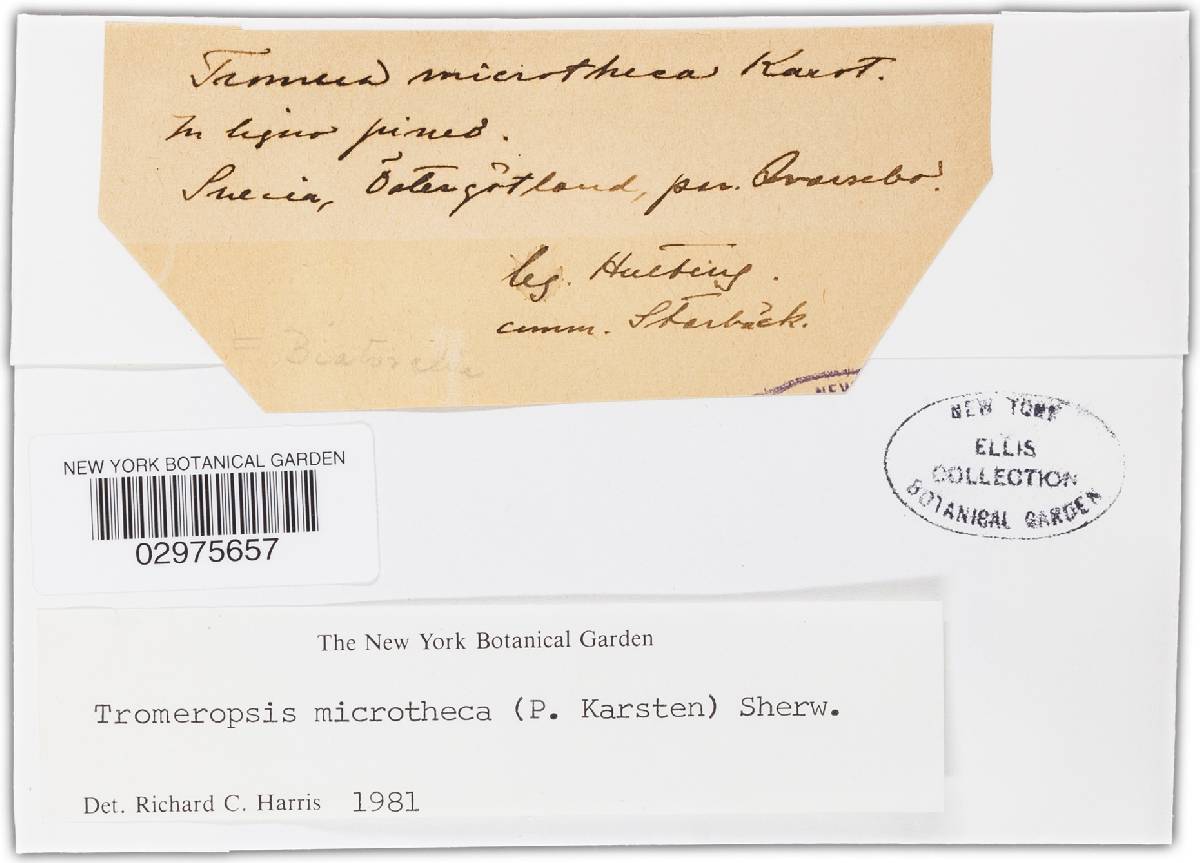 Tromera microtheca Karst.
In ligno pineo.
Suecia, Östergötland, par. Qvarsebo.
leg. Hulting.
comm. Starbäck.
= Biatorella
NEW
NEW YORK
ELLIS
COLLECTION
BOTANICAL GARDEN
NEW YORK BOTANICAL GARDEN
02975657
The New York Botanical Garden
Tromeropsis microtheca (P. Karsten) Sherw.
Det. Richard C. Harris 1981